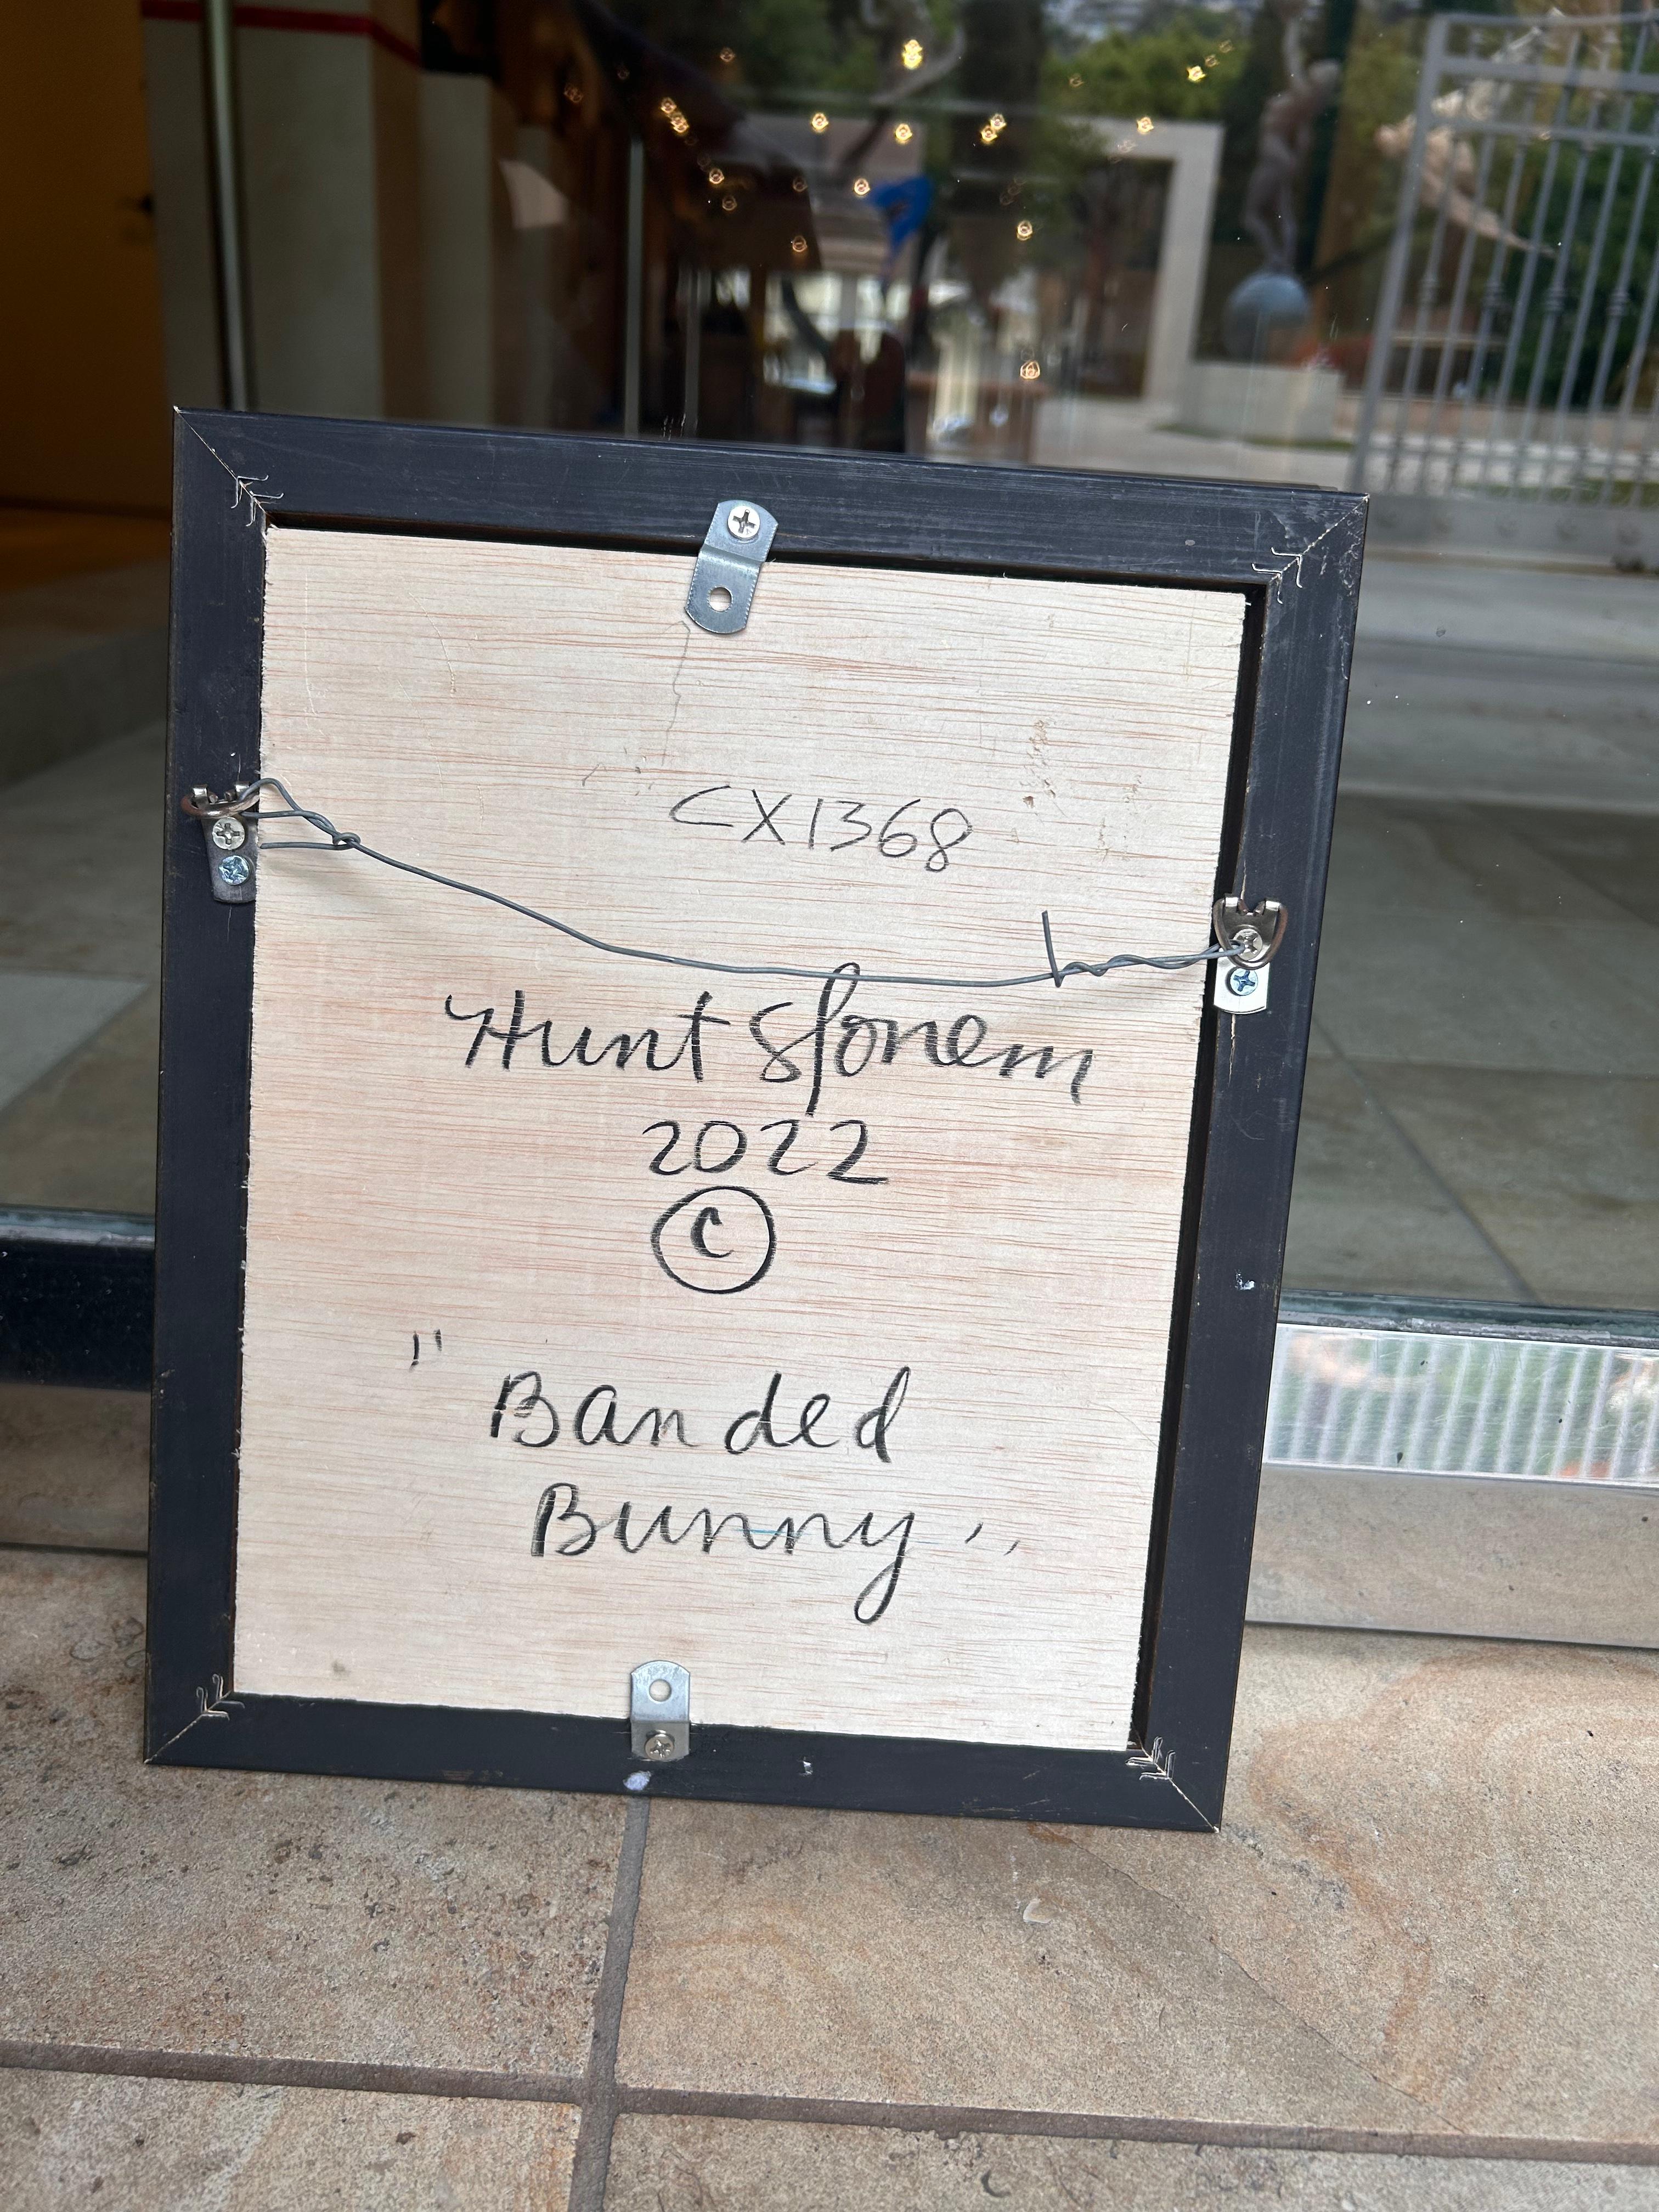 CX1368
Hunt Slonem
2022
©
"Banded
Bunny"